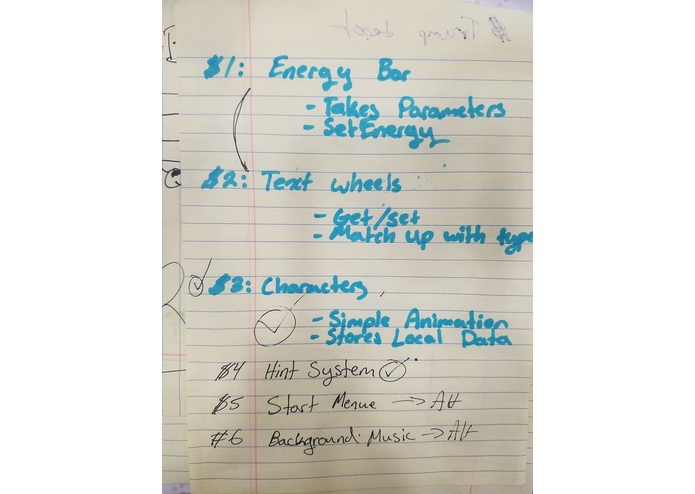 $1: Energy Bar
- Takes Parameters
- SetEnergy
$2: Text wheels
- Get/set
- Match up with type
$3: Characters
- Simple Animation
- Stores Local Data
$4 Hint System
$5 Start Menue →
#6 Background Music →